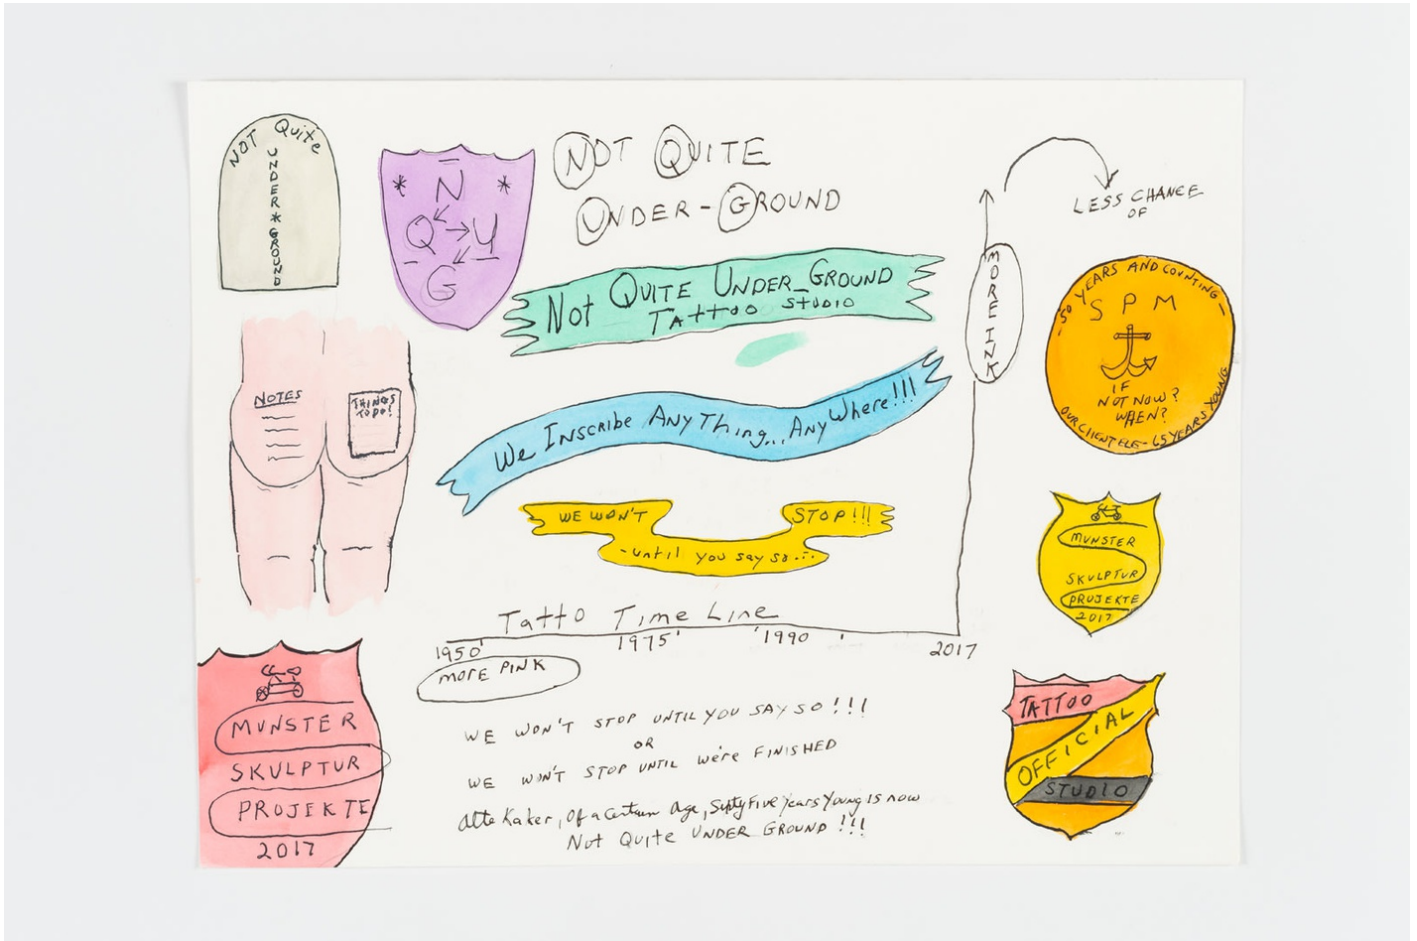 NOT Quite
UNDER*GROUND
* N *
Q → U
G
NOT QUITE
UNDER-GROUND
Not Quite Under_Ground
Tattoo Studio
We Inscribe AnyThing...AnyWhere!!!
WE WON'T STOP!!!
-until you say so...
NOTES
THINGS
TO DO!
MORE INK
LESS CHANCE
OF
-50 YEARS AND COUNTING-
SPM
IF
NOT NOW?
WHEN?
OUR CLIENTELE-65 YEARS YOUNG
MUNSTER
SKULPTUR
PROJEKTE
2017
TATTOO
OFFICIAL
STUDIO
Tatto Time Line
1950' 1975' '1990 2017
MORE PINK
MUNSTER
SKULPTUR
PROJEKTE
2017
WE WON'T STOP UNTIL YOU SAY SO!!!
OR
WE WON'T STOP UNTIL we're FINISHED
Alte Kaker, Of a Certain Age, Sixty Five Years Young IS now
Not Quite UNDER GROUND!!!